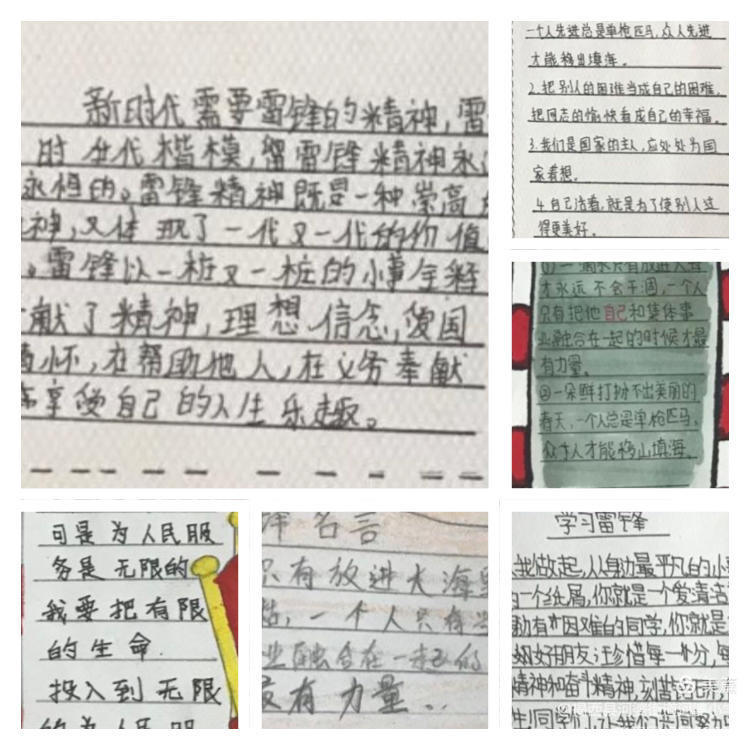 新时代需要雷锋的精神,雷
时女代楷模,留雷锋精神永
永恒的。雷锋精神既是一种崇高
神,又体现了一代又一代的价值
。雷锋以一桩又一桩的小事全释
献了精神,理想信念,爱国
怀,在帮助他人,在义务奉献
享受自己的人生乐趣。
一个人先进总是单枪匹马,众人先进
才能移山填海。
2.把别人的困难当成自己的困难,
把同志的愉快看成自己的幸福。
3.我们是国家的主人,应处处为国
家着想。
4.自己活着,就是为了使别人过
得更美好。
①一滴水只有放进大海
才永远不会干涸,一个人
只有把他自己和集体事
业融合在一起的时候才最
有力量。
②一朵鲜打扮不出美丽的
春天,一个人总是单枪匹马,
众人才能移山填海。
可是为人民服
务是无限的
我要把有限
的生命
投入到无限
的为人民服
名言
只有放进大海里
,一个人只有
业融合在一起的
最有力量。
学习雷锋
我做起,从身边最平凡的小
一个纸屑,你就是一个爱清洁
助有困难的同学,你就是
好朋友;珍惜每一分,每
精神和奋斗精神,刻苦
同学们,让我们共同努力